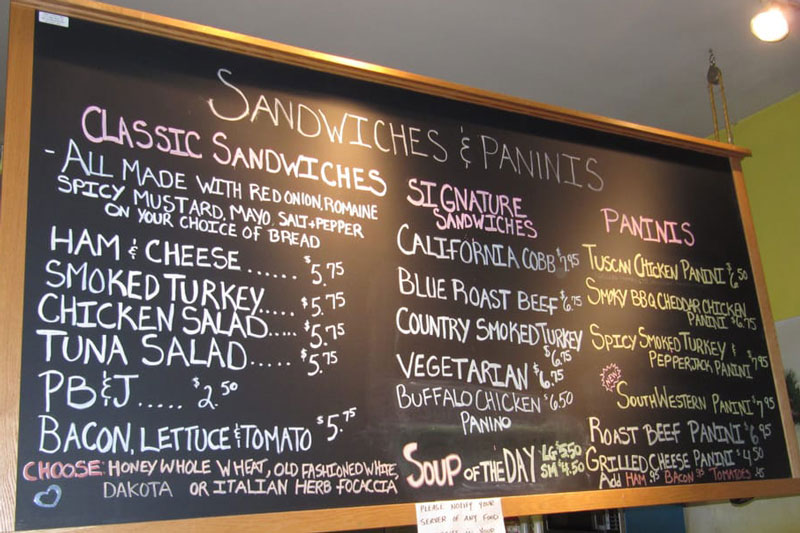 SANDWICHES & PANINIS
CLASSIC SANDWICHES
- ALL MADE WITH RED ONION, ROMAINE
SPICY MUSTARD, MAYO, SALT + PEPPER
ON YOUR CHOICE OF BREAD
HAM & CHEESE ...... $5.75
SMOKED TURKEY.... $5.75
CHICKEN SALAD.... $5.75
TUNA SALAD..... $5.75
PB&J..... $2.50
BACON, LETTUCE & TOMATO $5.75
CHOOSE: HONEY WHOLE WHEAT, OLD FASHIONED WHITE,
DAKOTA OR ITALIAN HERB FOCACCIA
SIGNATURE
SANDWICHES
CALIFORNIA COBB $7.95
BLUE ROAST BEEF $6.75
COUNTRY SMOKED TURKEY
$6.75
VEGETARIAN $6.75
BUFFALO CHICKEN $6.50
PANINO
SOUP OF THE DAY LG $5.50
SM $4.50
PANINIS
TUSCAN CHICKEN PANINI $6.50
SMOKY BBQ CHEDDAR CHICKEN
PANINI $6.75
SPICY SMOKED TURKEY &
PEPPERJACK PANINI $7.95
NEW
SOUTHWESTERN PANINI $7.95
ROAST BEEF PANINI $6.95
GRILLED CHEESE PANINI $4.50
Add HAM .95 BACON .95 TOMATOES .45
PLEASE NOTIFY YOUR
SERVER OF ANY FOOD
IN YOUR